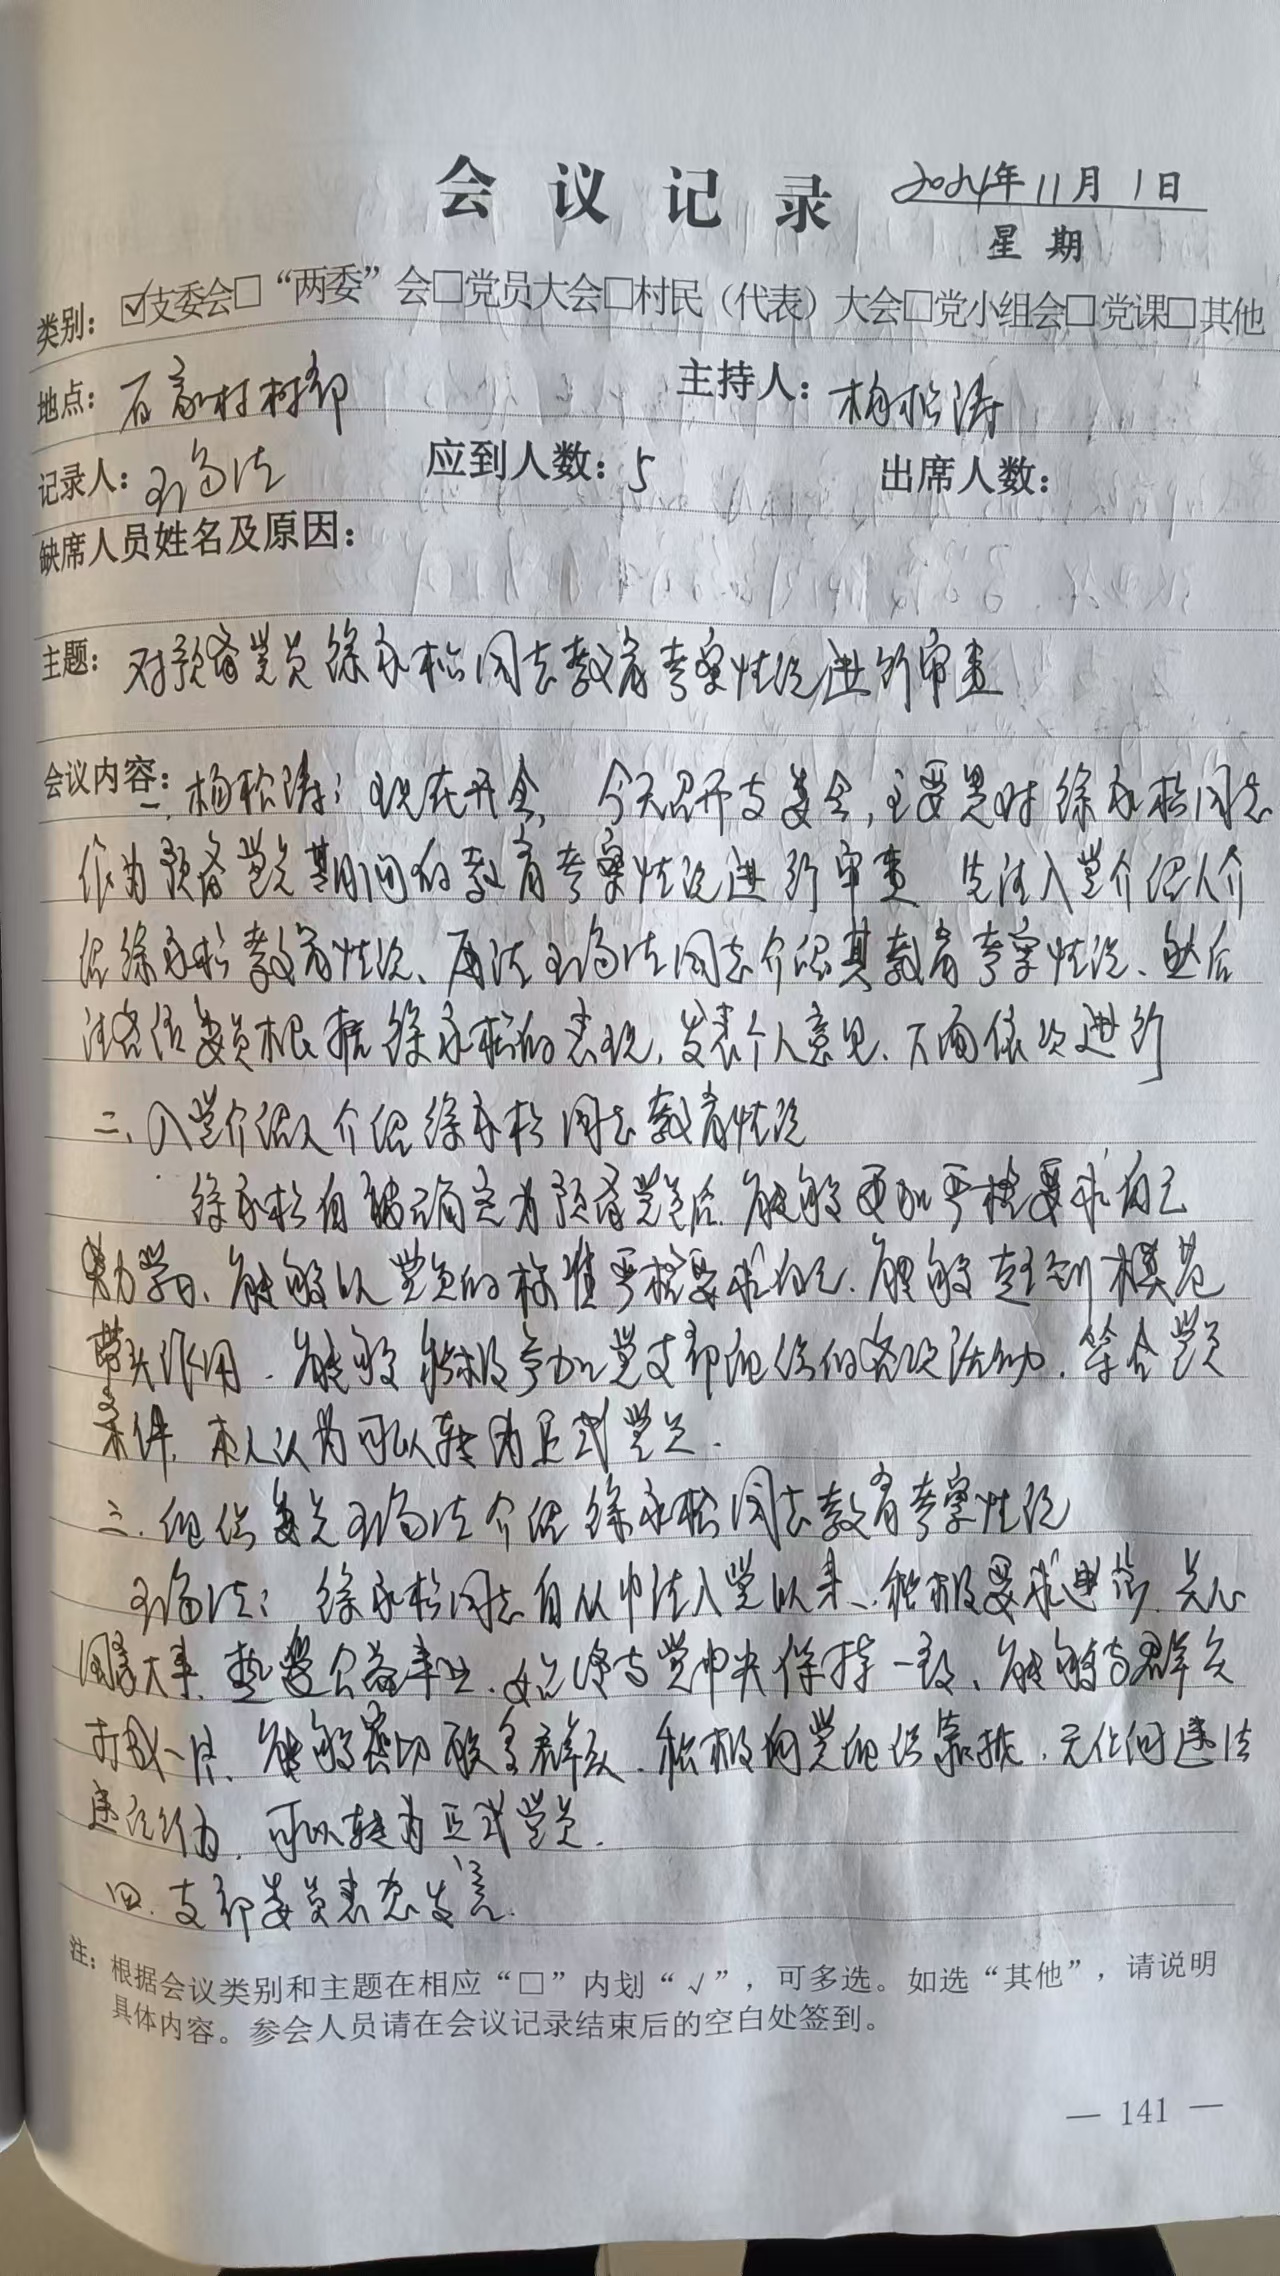 会议记录 2024年11月1日
星期
类别：☑支委会□“两委”会□党员大会□村民（代表）大会□党小组会□党课□其他
地点：石家村村部 主持人：杨松涛
记录人：王海法 应到人数：5 出席人数：
缺席人员姓名及原因：
主题：对预备党员徐永松同志教育考察情况进行审查
会议内容：
一、杨松涛：现在开会，今天召开支委会，主要是对徐永松同志
作为预备党员期间的教育考察情况进行审查 先请入党介绍人介
绍徐永松教育情况、再请王海法同志介绍其教育考察情况、然后
请各位委员根据徐永松的表现，发表个人意见、下面依次进行
二、入党介绍人介绍徐永松同志教育情况
徐永松自被确定为预备党员后、能够更加严格要求自己
努力学习、能够以党员的标准严格要求自己、能够起到模范
带头作用、能够积极参加党支部组织的各项活动、符合党员
条件，本人认为可以转为正式党员.
三、组织委员王海法介绍徐永松同志教育考察情况
王海法：徐永松同志自从申请入党以来、积极要求进步、关心
国家大事、热爱公益事业、始终与党中央保持一致、能够与群众
打成一片、能够密切联系群众、积极向党组织靠拢、无任何违法
违纪行为、可以转为正式党员.
四、支部委员表态发言.
注：根据会议类别和主题在相应“□”内划“√”，可多选。如选“其他”，请说明
具体内容。参会人员请在会议记录结束后的空白处签到。
— 141 —